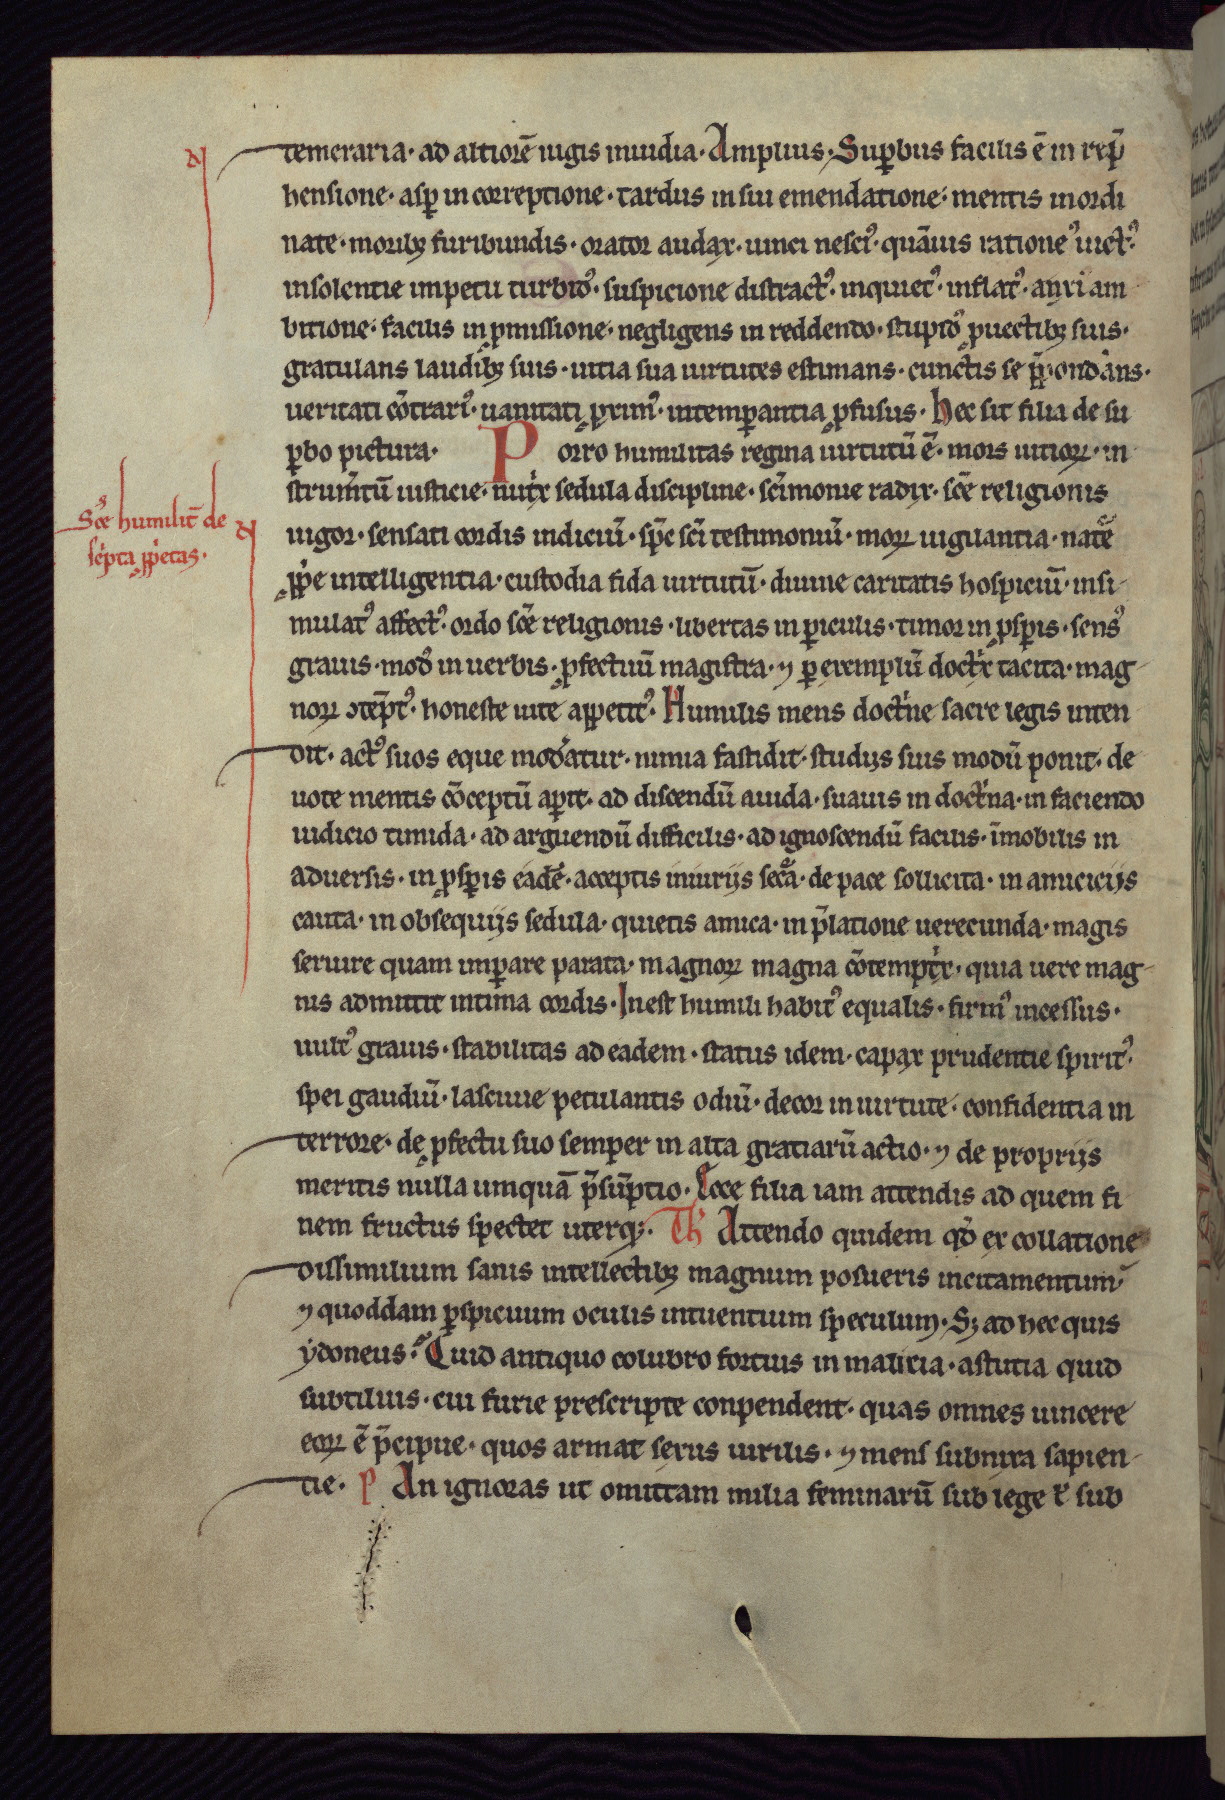 temeraria· ad altiorē iugis inuidia· Amplius· Suꝑbus facilis ē in rep̄
hensione· asꝑ in correptione· tardus in sui emendatione· mentis inordi
nate· moribꝫ furibundis· orator audax· uinci nesciꝰ· quāuis rationeꝰ uictꝰ·
insolentie impetu turbidꝰ· suspicione distractꝰ· inquietꝰ· inflatꝰ· anxi am
bitione· facilis in ꝓmissione· negligens in reddendo· stupidꝰ ꝓuectibꝫ suis·
gratulans laudibꝫ suis· uitia sua uirtutes estimans· cunctis se p̄ponderans·
ueritati cōtrariꝰ· uanitati ꝓximꝰ· intemꝑantia ꝓfusus· Hec sit filia de su
ꝑbo pictura· Porro humilitas regina uirtutū ē· mors uitioꝝ· in
strum̄tū iusticie· nutⁱx sedula discipline· scīmonie radix· scē religionis
uigor· sensati cordis indiciū· spc̄ scī testimoniū· moꝝ uigilantia· natᵉ̄
ꝓpⁱe intelligentia· custodia fida uirtutū· diuine caritatis hospiciū· insi
mulatꝰ affectꝰ· ordo scē religionis· libertas in periculis· timor in ꝓsꝑis· sensꝰ
grauis· modꝰ in uerbis· ꝓfectuū magistra· ⁊ ꝑ exemplū doctⁱx tacita· mag
noꝝ ꝯtēptꝰ· honeste uite appetitꝰ· Humilis mens doctⁱne sacre legis inten
dit· actꝰ suos eque modatur· nimia fastidit· studiis suis modū ponit· de
uote mentis cōceptū aꝑit· ad discendū auida· suauis in doctⁱna· in faciendo
iudicio timida· ad arguendū difficilis· ad ignoscendū facilis· īmobilis in
aduersis· in ꝓsꝑis eadē· acceptis iniuriis secᵃ̄· de pace sollicita· in amiciciis
cauta· in obsequiis sedula· quietis amica· in p̄latione uerecunda· magis
seruire quam imꝑare parata· magnoꝝ magna cōtemptⁱx· quia uere mag
nis admittit intima cordis· Inest humili habitꝰ equalis· firmꝰ incessus·
uultꝰ grauis· stabilitas ad eadem· status idem· capax prudentie spiritꝰ·
spei gaudiū· lasciuie petulantis odiū· decor in uirtute· confidentia in
terrore· de ꝓfectu suo semper in alta gratiarū actio· ⁊ de propriis
meritis nulla umquā p̄sūptio· Ecce filia iam attendis ad quem fi
nem fructus spectet uterqꝫ· Th̄ Attendo quidem qđ ex collatione
dissimilium sanis intellectibꝫ magnum posueris incitamentum
⁊ quoddam ꝑspicuum oculis intuentium speculum· Sꝫ ad hec quis
ydoneus· Quid antiquo colubro fortius in malicia· astutia quid
subtilius· cui furie prescripte conpendent· quas omnes uincere
eoꝝ ē p̄cipue· quos armat sexus uirilis· ⁊ mens subnixa sapien
tie· P An ignoras ut omittam milia feminarū sub lege ł sub
Scē humilit̄ de
sc̄pta ꝓpⁱetas·